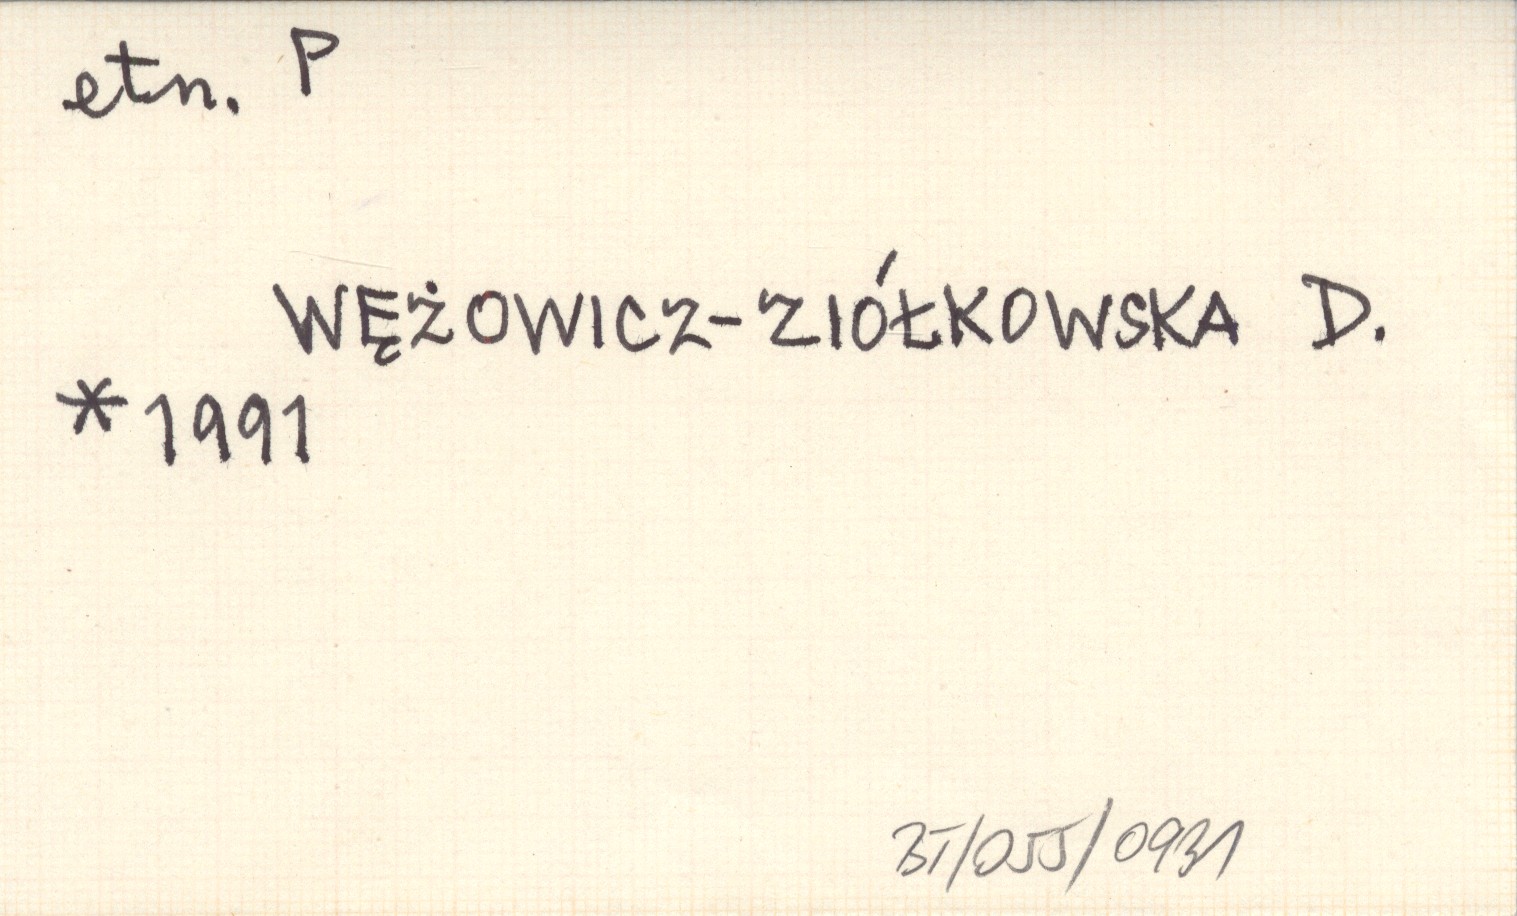 etn. P
WĘŻOWICZ-ZIÓŁKOWSKA D.
*1991
BT/055/0931